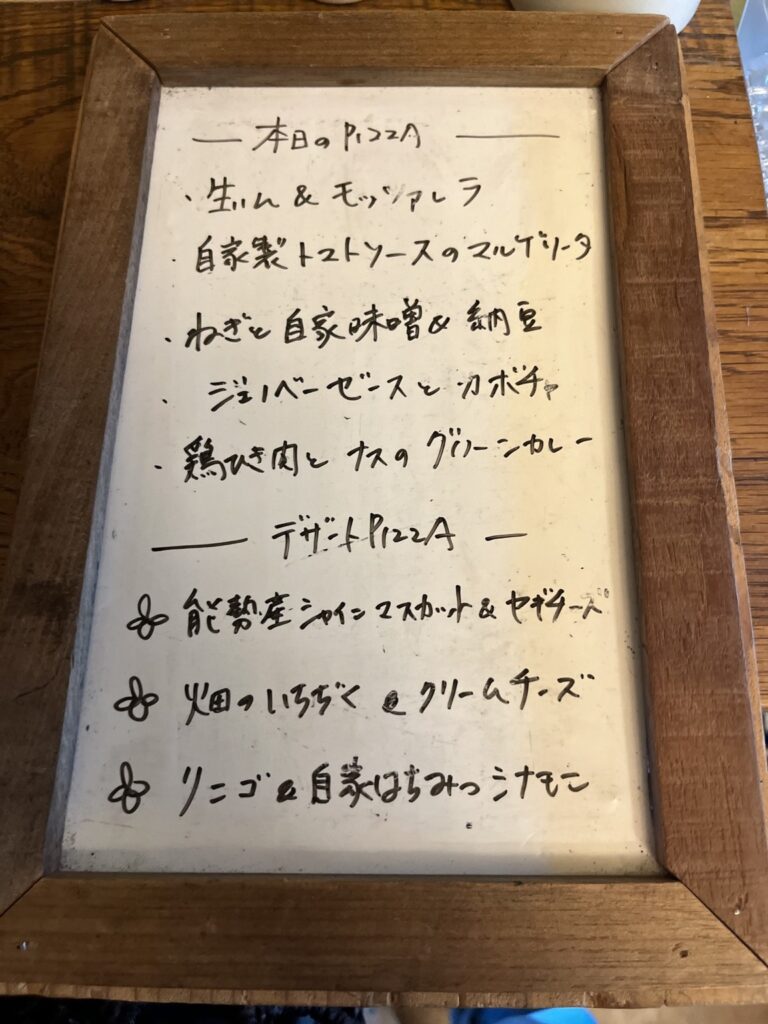 — 本日のPIZZA —
・生ハム & モッツァレラ
・自家製トマトソースのマルゲリータ
・ねぎと自家味噌&納豆
・ジェノベーゼースとカボチャ
・鶏ひき肉とナスのグリーンカレー
— デザートPIZZA —
能勢産シャインマスカット&ヤギチーズ
畑のいちぢく&クリームチーズ
リンゴ&自家はちみつシナモン